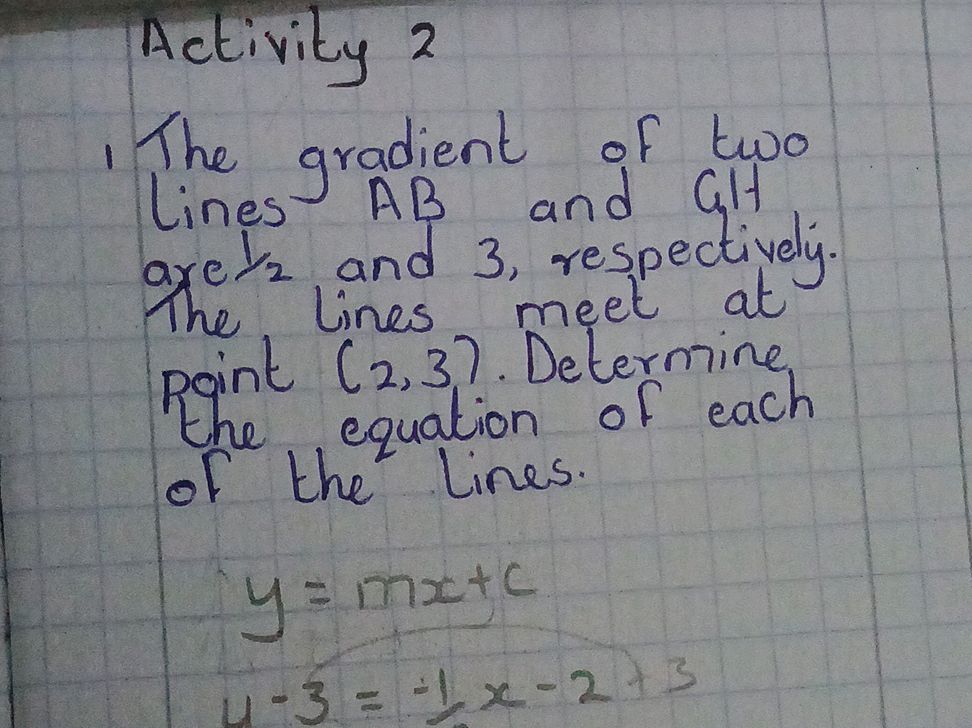 Activity 2
1 The gradient of two
lines AB and GH
are 1/2 and 3, respectively.
The lines meet at
point (2,3). Determine
the equation of each
of the lines.
y = mx+c
y - 3 = -1/2 x - 2 + 3